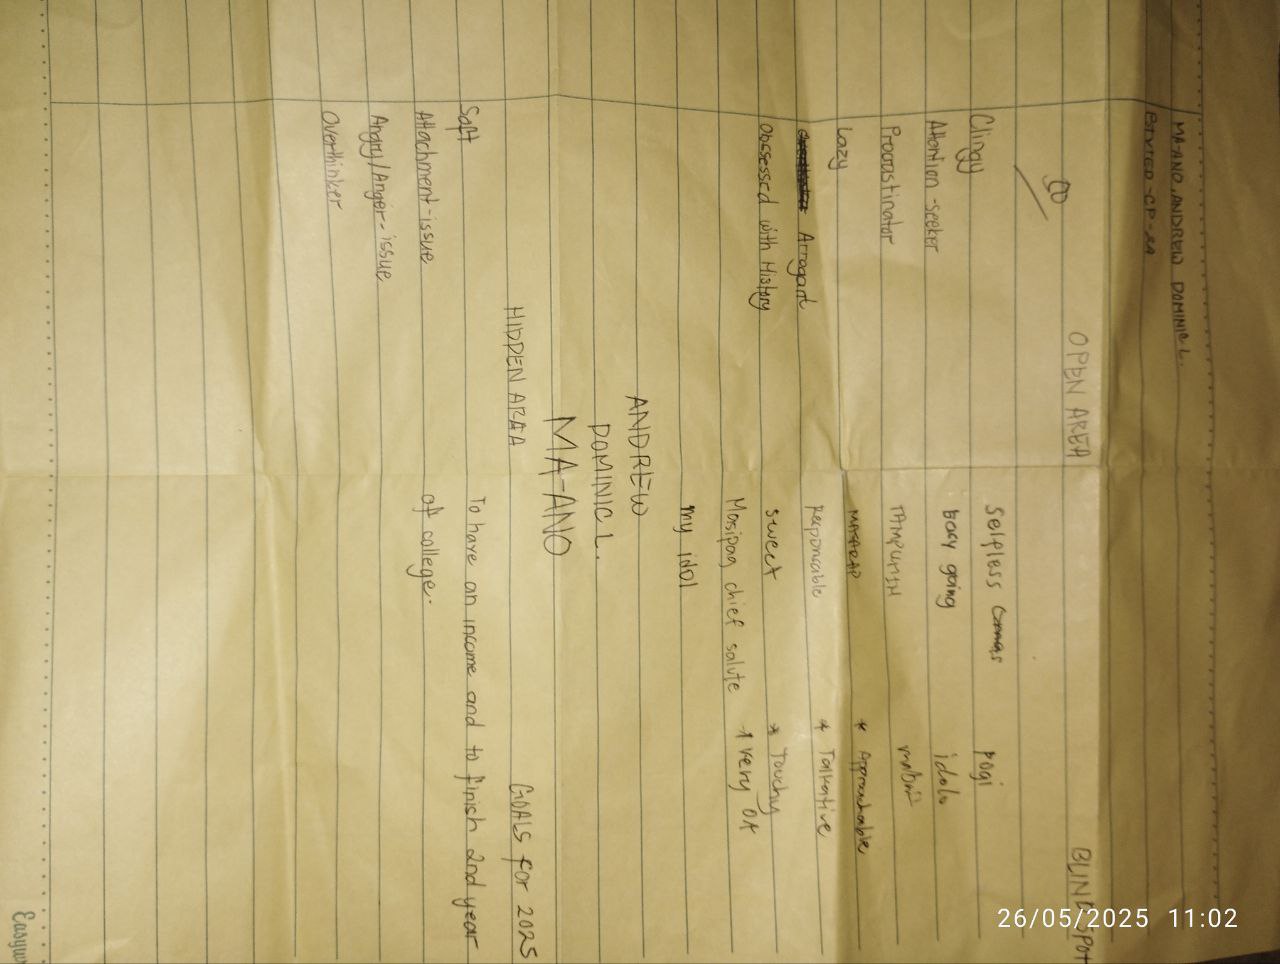 MA-ANO, ANDREW DOMINIC L.
BTVTED-CP-2A
OPEN AREA
50
Clingy
Attention-seeker
Procrastinator
Lazy
Arrogant
Obssessed with History
BLIND SPOT
Selfless
Easy going
TAMPUHIN
MASARAP
Responsable
sweet
Masipag chief salute
my idol
pogi
idolo
mabait
* Approachable
* Talkative
* Touchy
* very OA
ANDREW
DOMINIC L.
MA-ANO
HIDDEN AREA
Soft
Attachment-issue
Angry/Anger-issue
Overthinker
GOALS for 2025
To have an income and to finish 2nd year
of college.
26/05/2025 11:02